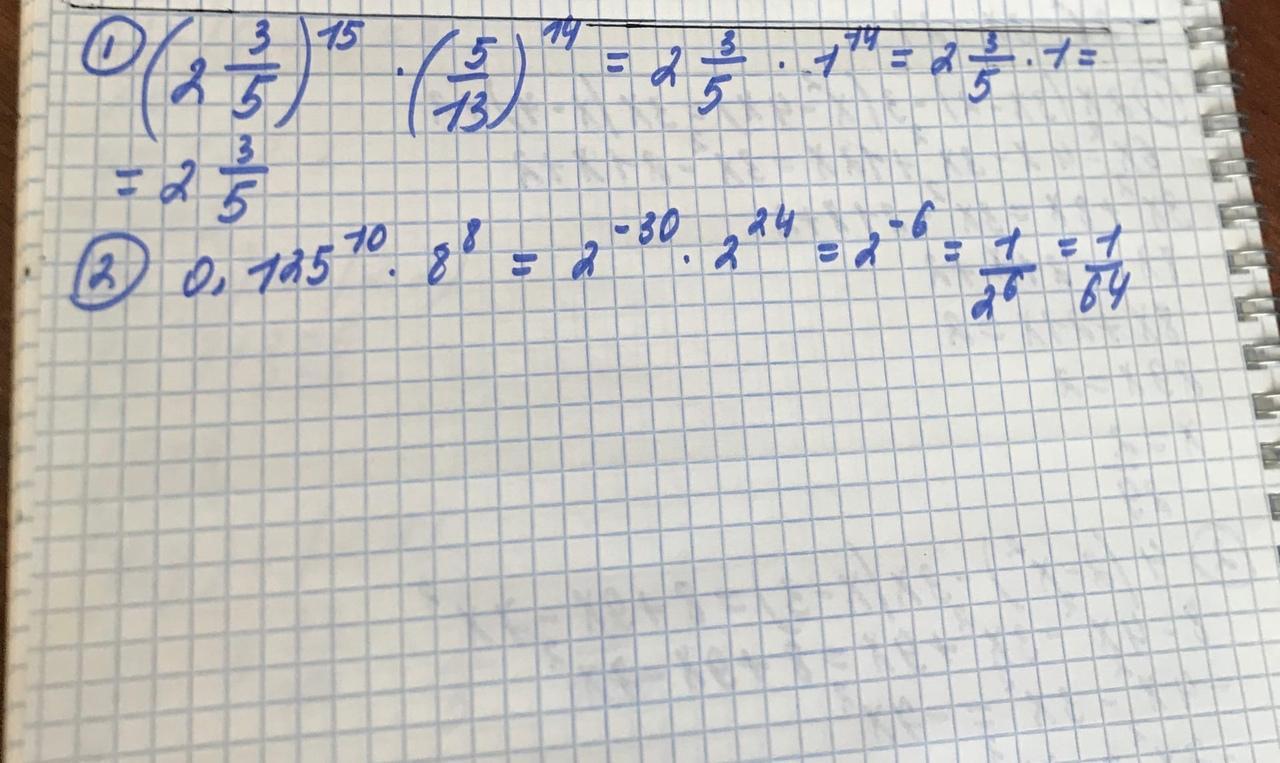 ① (2 3/5)^15 · (5/13)^14 = 2 3/5 · 1^14 = 2 3/5 · 1 =
= 2 3/5
② 0,125^10 · 8^8 = 2^-30 · 2^24 = 2^-6 = 1/2^6 = 1/64